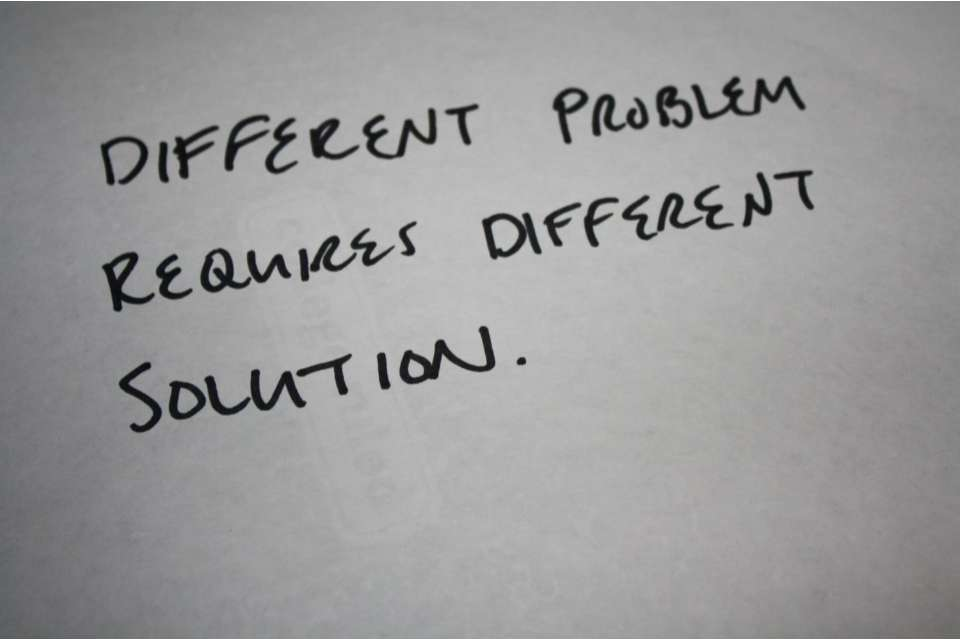 DIFFERENT PROBLEM
REQUIRES DIFFERENT
SOLUTION.